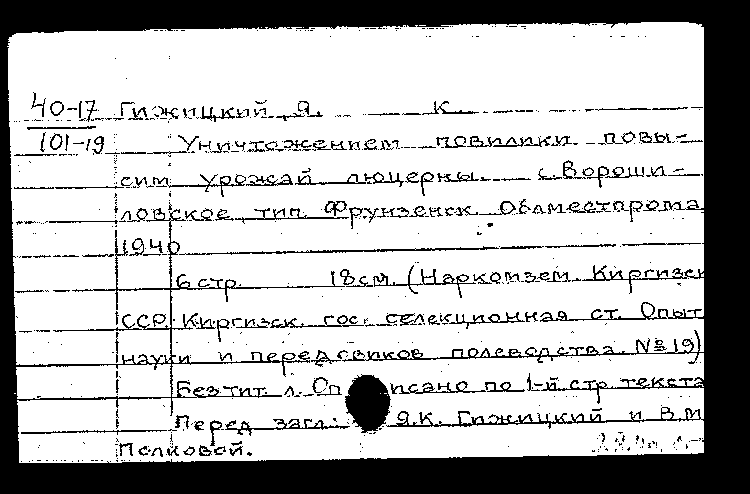 40-17 Гижицкий, Я. К.
101-19 Уничтожением повилики повы-
сим урожай люцерны. с. Вороши-
ловское, тип. Фрунзенск. Облместпрома,
1940
6 стр. 18 см. (Наркомзем. Киргизск
ССР. Киргизск. гос. селекционная ст. Опыт
науки и передовиков полеводства. №19)
Без тит. л. Оп исано по 1-й стр. текста
Перед загл.: Я.К. Гижицкий и В.М.
Полковой.